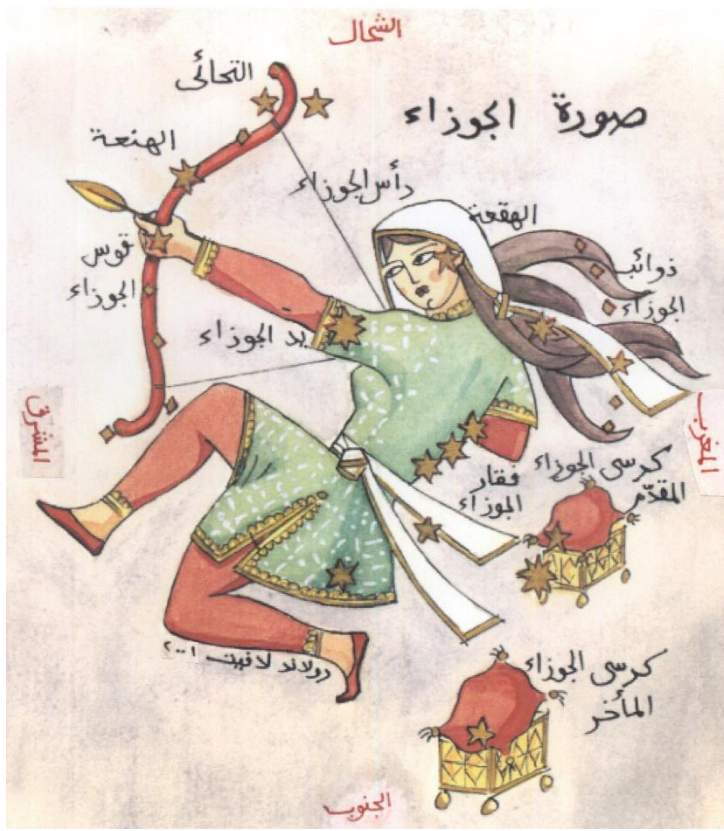 الشمال
صورة الجوزاء
التحائى
الهنعة
رأس الجوزاء
الهقعة
قوس
الجوزاء
ذوائب
الجوزاء
يد الجوزاء
المشرق
المغرب
فقار
الجوزاء
كرسى الجوزاء
المقدّم
كرسى الجوزاء
المأخر
الجنوب